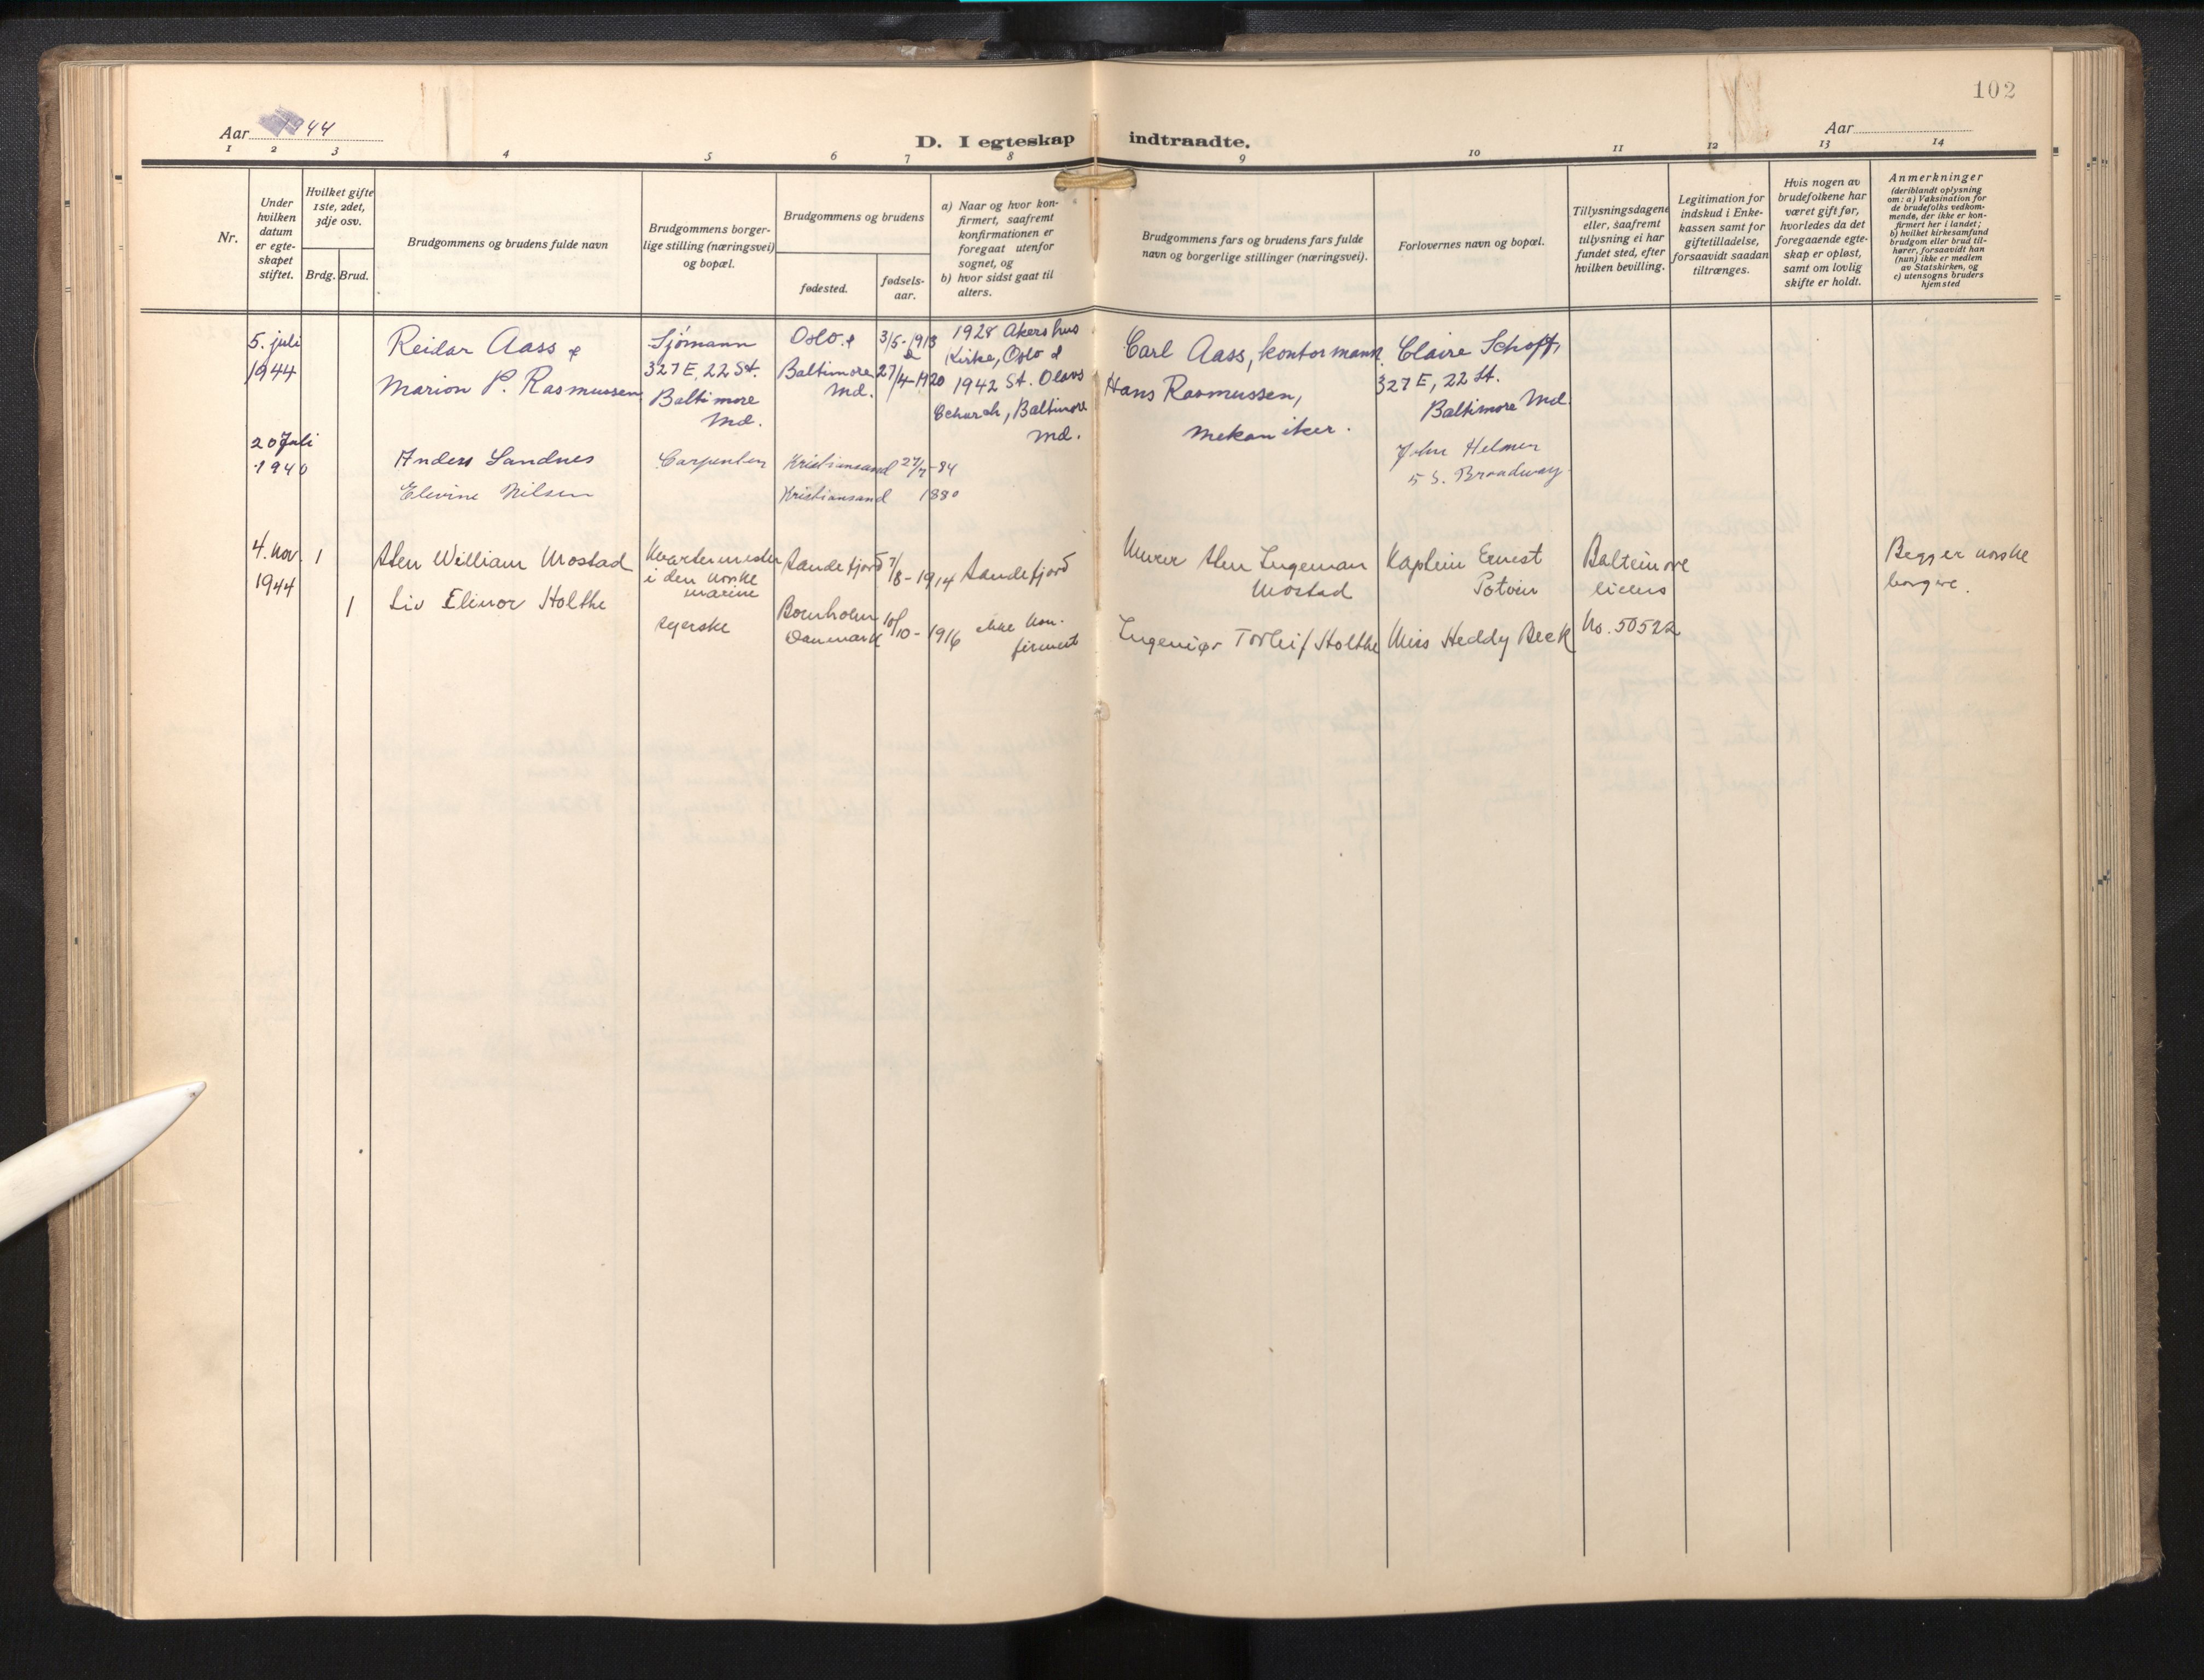 102
Aar 1944
D. I egteskap indtraadte.
Aar
1 2 3 4 5 6 7 8 9 10 11 12 13 14
Nr.
Under
hvilken
datum
er egte-
skapet
stiftet.
Hvilket gifte
1ste, 2det,
3dje osv.
Brdg. Brud.
Brudgommens og brudens fulde navn
Brudgommens borger-
lige stilling (næringsvei)
og bopæl.
Brudgommens og brudens
fødested.
fødsels-
aar.
a) Naar og hvor kon-
firmert, saafremt
konfirmationen er
foregaat utenfor
sognet, og
b) hvor sidst gaat til
alters.
Brudgommens fars og brudens fars fulde
navn og borgerlige stillinger (næringsvei).
Forlovernes navn og bopæl.
Tillysningsdagene
eller, saafremt
tillysning ei har
fundet sted, efter
hvilken bevilling.
Legitimation for
indskud i Enke-
kassen samt for
giftetilladelse,
forsaavidt saadan
tiltrænges.
Hvis nogen av
brudefolkene har
været gift før,
hvorledes da det
foregaaende egte-
skap er opløst,
samt om lovlig
skifte er holdt.
Anmerkninger
(deriblandt oplysning
om: a) Vaksination for
de brudefolks vedkom-
mende, der ikke er kon-
firmert her i landet;
b) hvilket kirkesamfund
brudgom eller brud til-
hører, forsaavidt han
(hun) ikke er medlem
av Statskirken, og
c) utensogns bruders
hjemsted
5. juli
1944
Reidar Aass &
Marion P. Rasmussen
Sjömann
327 E, 22 St.
Baltimore
Md.
Oslo &
Baltimore
Md.
3/5-1913
&
27/4-1920
1928 Akershus
Kirke, Oslo &
1942 St. Olavs
Church, Baltimore
Md.
Carl Aass, kontormann
Hans Rasmussen,
mekaniker.
Claire Schoff,
327 E, 22 St.
Baltimore Md.
20 Juli
1940
Anders Sandnes
Elevine Nilsen
Carpenter
Kristiansand 27/7-84
Kristiansand 1880
John Helmer
5 S. Broadway.
4. Nov.
1944
1
1
Sten William Mostad
Liv Elinor Holthe
Kvartermester
i den norske
marine
syerske
Sandefjord 7/8-1914
Bornholm
Danmark 10/10-1916
Sandefjord
ikke kon-
firmert
Murer Sten Ingeman
Mostad
Ingeniør Torleif Holthe
Kaptein Ernest
Potvin
Miss Heddy Beek
Baltimore
licens
No. 50522
Begge er norske
borgere.